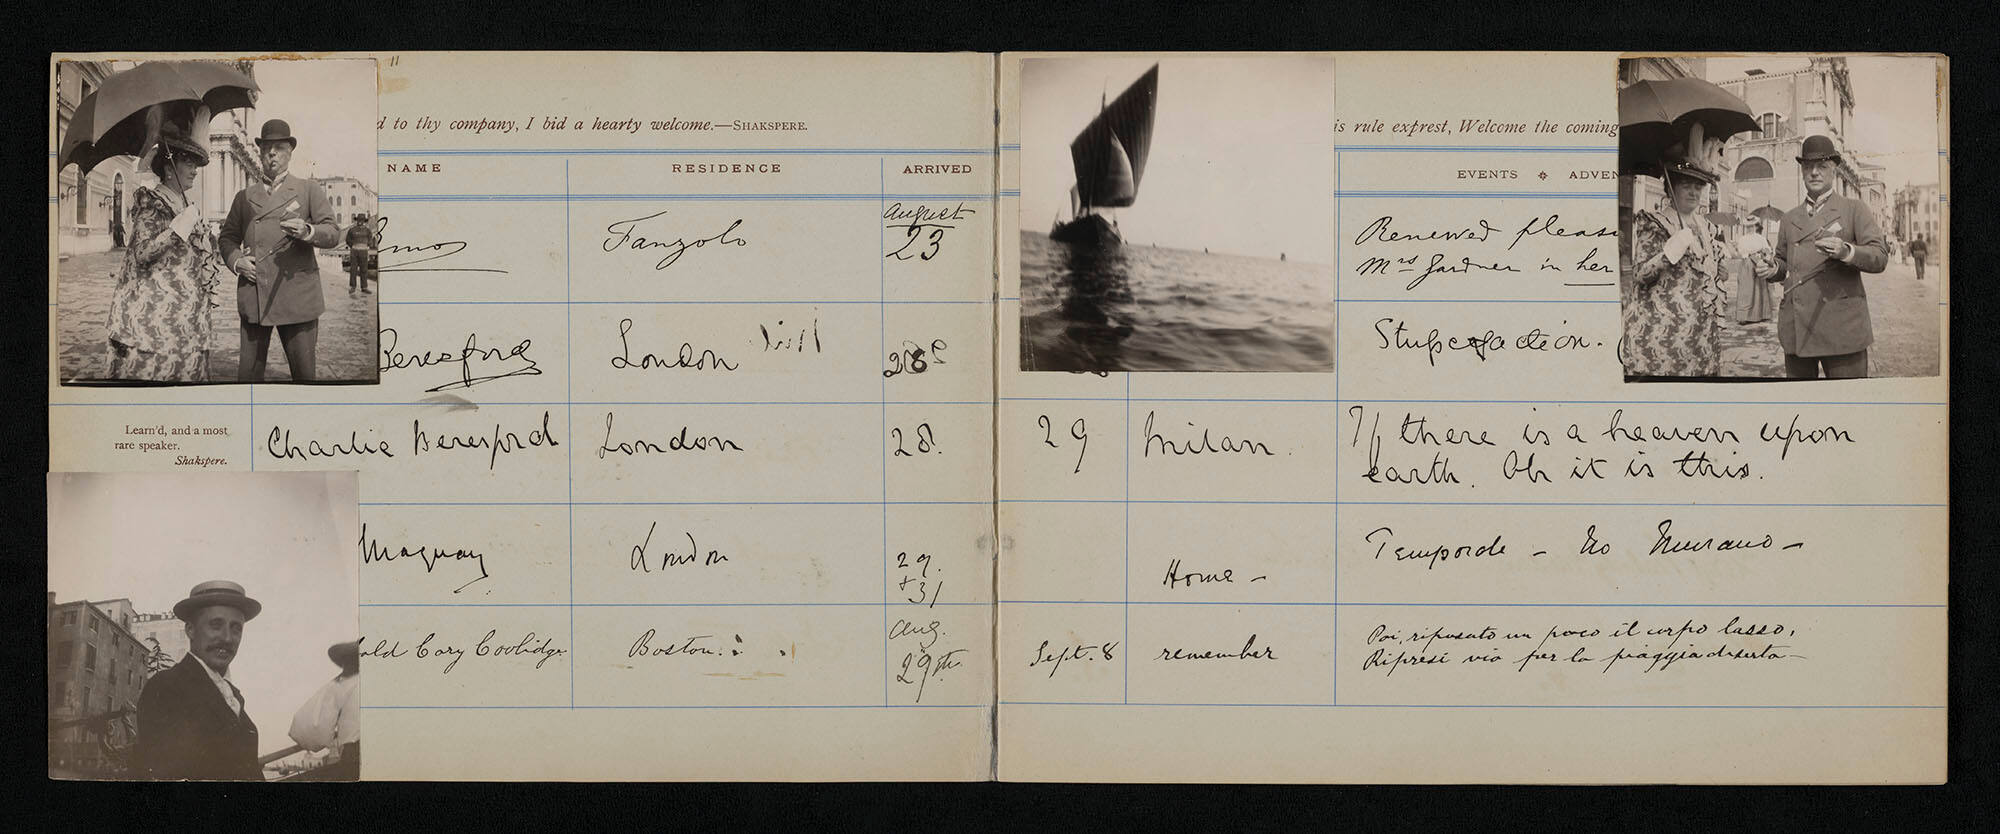 11
d to thy company, I bid a hearty welcome.—SHAKSPERE.
NAME RESIDENCE ARRIVED
Emo Fanzolo August 23
Beresford London 28
Learn'd, and a most
rare speaker.
Shakspere.
Charlie Beresford London 28.
Maquay London 29.
+ 31
ald Cary Coolidge Boston. Aug.
29th
is rule exprest, Welcome the coming
EVENTS ADVEN
Renewed pleasu
Mrs Gardner in her
Stupefaction.
29 Milan. If there is a heaven upon
earth. Oh it is this.
Home – Temporale – No Murano –
Sept. 8 remember Poi, riposato un poco il corpo lasso,
Ripresi via per la piaggia diserta –